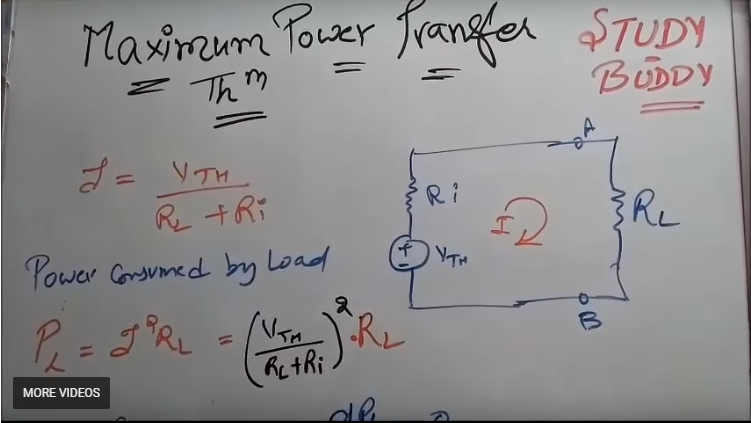 Maximum Power Transfer
Thm
STUDY
BUDDY
I = VTH / RL + Ri
Power Consumed by Load
PL = I²RL = (VTH / RL+Ri)².RL
A
Ri
I
RL
VTH
B
MORE VIDEOS